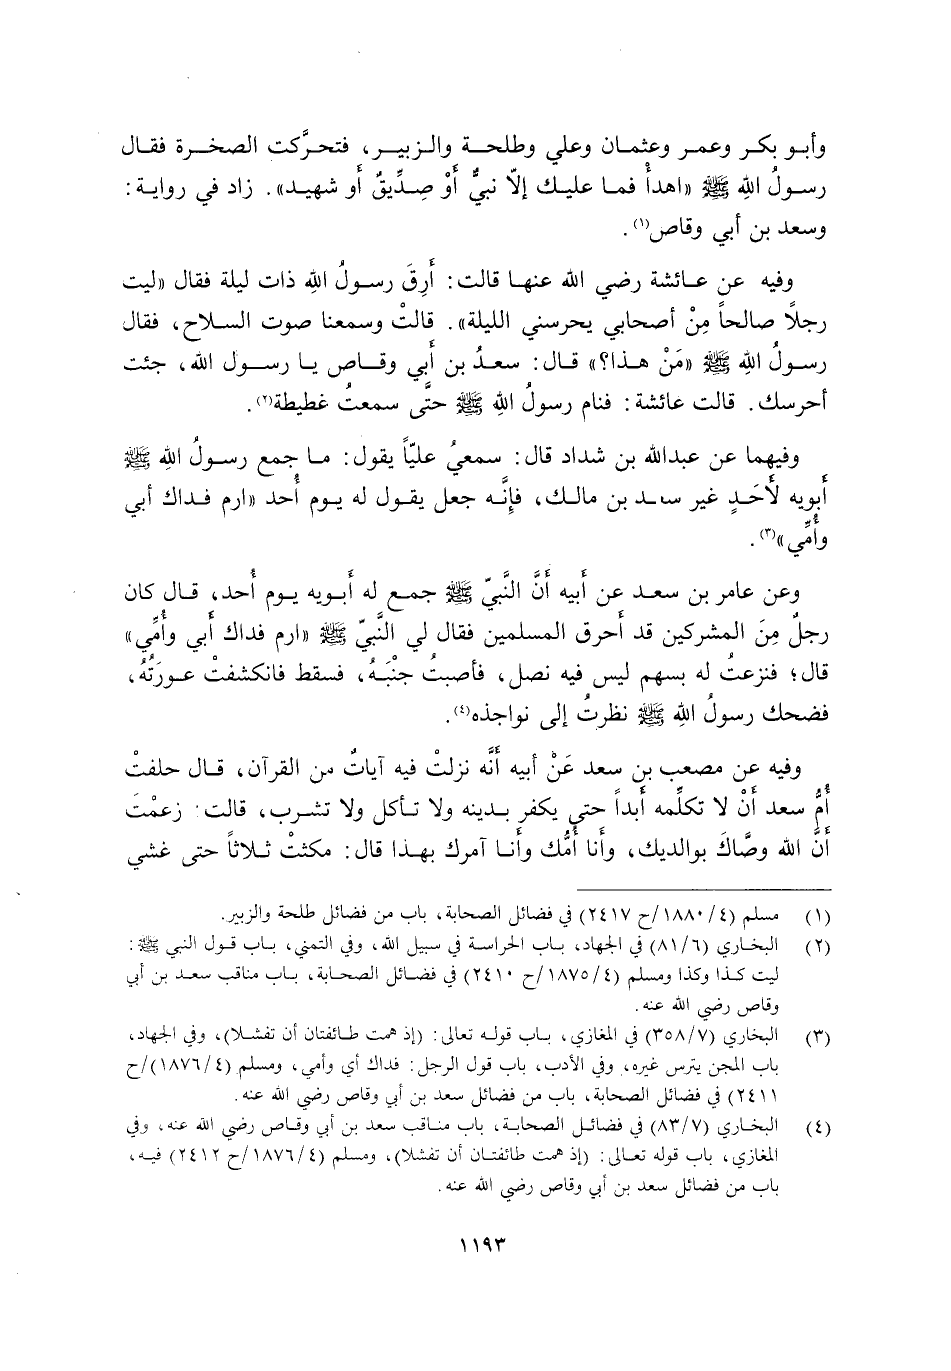 وأبو بكر وعمر وعثمان وعلي وطلحة والزبير، فتحرَّكت الصخرة فقال
رسولُ اللهِ ﷺ «اهدأْ فما عليك إلّا نبيٌّ أَوْ صِدِّيقٌ أَو شهيد». زاد في رواية:
وسعد بن أبي وقاص(١).
وفيه عن عائشة رضي الله عنها قالت: أَرِقَ رسولُ اللهِ ذات ليلة فقال «ليت
رجلًا صالحاً مِنْ أصحابي يحرسني الليلة». قالتْ وسمعنا صوت السلاح، فقال
رسولُ اللهِ ﷺ «مَنْ هذا؟» قال: سعدُ بن أَبي وقاص يا رسول الله، جئت
أحرسك. قالت عائشة: فنام رسولُ اللهِ ﷺ حتَّى سمعتُ غطيطة(٢).
وفيهما عن عبدالله بن شداد قال: سمعيُ عليّاً يقول: ما جمع رسولُ اللهِ ﷺ
أَبويه لأَحَدٍ غير سعد بن مالك، فإِنَّه جعل يقول له يوم أُحد «ارم فداك أبي
وأُمِّي»(٣).
وعن عامر بن سعد عن أَبيه أَنَّ النَّبيّ ﷺ جمع له أَبويه يوم أُحد، قال كان
رجلٌ مِنَ المشركين قد أَحرق المسلمين فقال لي النَّبيّ ﷺ «ارم فداك أَبي وأُمِّي»
قال؛ فنزعتُ له بسهم ليس فيه نصل، فأصبتُ جنْبَهُ، فسقط فانكشفتْ عورَتُهُ،
فضحك رسولُ اللهِ ﷺ نظرتُ إلى نواجذه(٤).
وفيه عن مصعب بن سعد عَنْ أبيه أَنَّه نزلتْ فيه آياتٌ من القرآن، قال حلفتْ
أُمُّ سعد أَنْ لا تكلِّمه أَبداً حتى يكفر بدينه ولا تأكل ولا تشرب، قالت: زعمْتَ
أَنَّ الله وصَّاكَ بوالديك، وأَنا أُمُّك وأَنا آمرك بهذا قال: مكثتْ ثلاثاً حتى غشي
(١) مسلم (٤/ ١٨٨٠/ح ٢٤١٧) في فضائل الصحابة، باب من فضائل طلحة والزبير.
(٢) البخاري (٨١/٦) في الجهاد، باب الحراسة في سبيل الله، وفي التمني، باب قول النبي ﷺ:
ليت كذا وكذا ومسلم (٤/ ١٨٧٥/ح ٢٤١٠) في فضائل الصحابة، باب مناقب سعد بن أبي
وقاص رضي الله عنه.
(٣) البخاري (٣٥٨/٧) في المغازي، باب قوله تعالى: (إذ همت طائفتان أن تفشلا)، وفي الجهاد،
باب المجن يترس غيره، وفي الأدب، باب قول الرجل: فداك أي وأمي، ومسلم (٤/ ١٨٧٦)/ح
٢٤١١) في فضائل الصحابة، باب من فضائل سعد بن أبي وقاص رضي الله عنه.
(٤) البخاري (٨٣/٧) في فضائل الصحابة، باب مناقب سعد بن أبي وقاص رضي الله عنه، وفي
المغازي، باب قوله تعالى: (إذ همت طائفتان أن تفشلا)، ومسلم (٤/ ١٨٧٦/ح ٢٤١٢) فيه،
باب من فضائل سعد بن أبي وقاص رضي الله عنه.
١١٩٣